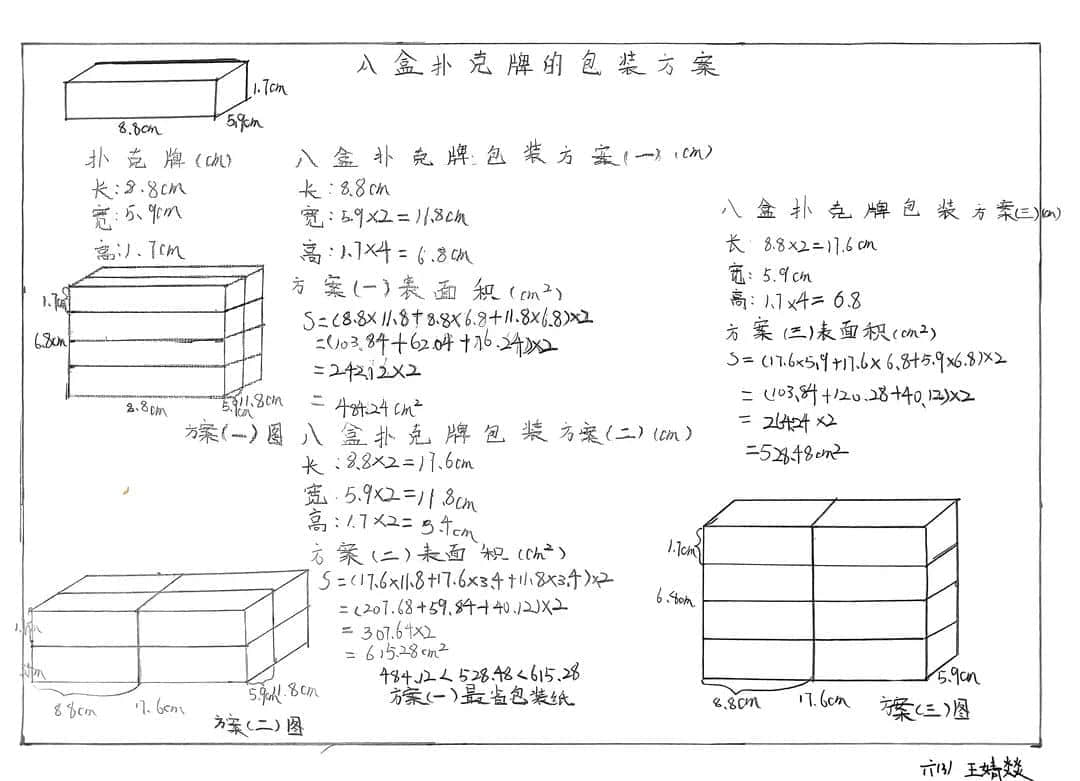 八盒扑克牌的包装方案
1.7cm
5.9cm
8.8cm
扑克牌(cm)
长:8.8cm
宽:5.9cm
高:1.7cm
1.7cm
6.8cm
8.8cm
5.9cm
11.8cm
方案(一)图
八盒扑克牌包装方案(一)(cm)
长:8.8cm
宽:5.9×2=11.8cm
高:1.7×4=6.8cm
方案(一)表面积(cm²)
S=(8.8×11.8+8.8×6.8+11.8×6.8)×2
=242.12×2
=484.24cm²
八盒扑克牌包装方案(二)(cm)
长:8.8×2=17.6cm
宽:5.9×2=11.8cm
高:1.7×2=3.4cm
方案(二)表面积(cm²)
S=(17.6×11.8+17.6×3.4+11.8×3.4)×2
=(207.68+59.84+40.12)×2
=307.64×2
=615.28cm²
484.12<528.48<615.28
方案(一)最省包装纸
8.8cm
17.6cm
5.9cm
11.8cm
方案(二)图
八盒扑克牌包装方案(三)(cm)
长:8.8×2=17.6cm
宽:5.9cm
高:1.7×4=6.8
方案(三)表面积(cm²)
S=(17.6×5.9+17.6×6.8+5.9×6.8)×2
=(103.84+120.28+40.12)×2
=264.24×2
=528.48cm²
1.7cm
6.8cm
8.8cm
17.6cm
5.9cm
方案(三)图
六(3) 王婧燚